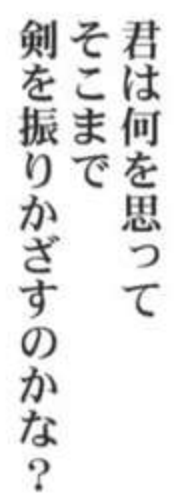 君は何を思って
そこまで
剣を振りかざすのかな？